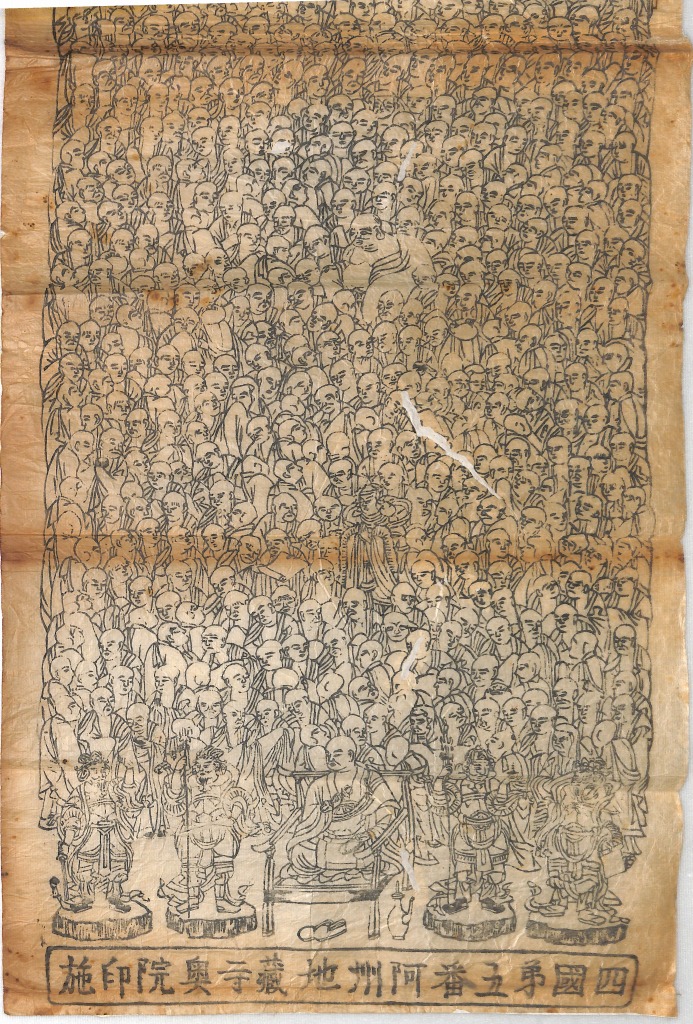 四國弟五番阿州地藏寺奥院印施